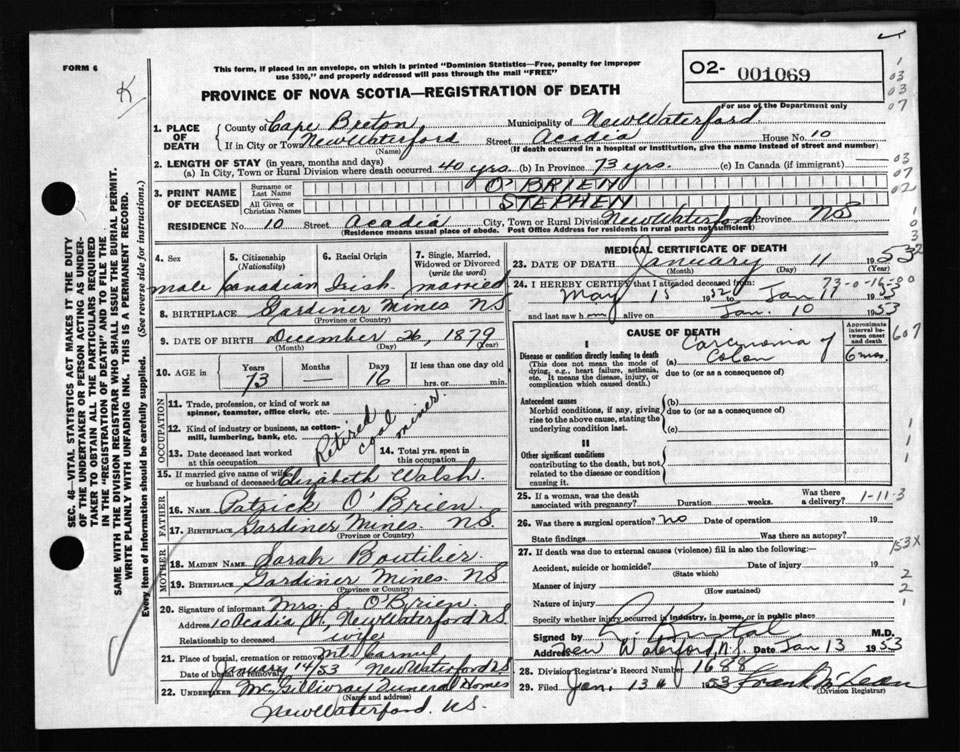 FORM 6
K
This form, if placed in an envelope, on which is printed "Dominion Statistics—Free, penalty for improper
use $300," and properly addressed will pass through the mail "FREE"
PROVINCE OF NOVA SCOTIA—REGISTRATION OF DEATH
02- 001069
For use of the Department only
SEC. 46—VITAL STATISTICS ACT MAKES IT THE DUTY
OF THE UNDERTAKER OR PERSON ACTING AS UNDER-
TAKER TO OBTAIN ALL THE PARTICULARS REQUIRED
IN THE "REGISTRATION OF DEATH" AND TO FILE THE
SAME WITH THE DIVISION REGISTRAR WHO SHALL ISSUE THE BURIAL PERMIT.
WRITE PLAINLY WITH UNFADING INK. THIS IS A PERMANENT RECORD.
Every item of information should be carefully supplied. (See reverse side for instructions.)
1. PLACE OF DEATH
County of Cape Breton Municipality of New Waterford
If in City or Town New Waterford Street Acadia House No. 10
(Name) (If death occurred in a hospital or institution, give the name instead of street and number)
2. LENGTH OF STAY (in years, months and days)
(a) In City, Town or Rural Division where death occurred 40 yrs. (b) In Province 73 yrs. (c) In Canada (if immigrant)
3. PRINT NAME OF DECEASED
Surname or Last Name O'BRIEN
All Given or Christian Names STEPHEN
RESIDENCE No. 10 Street Acadia City, Town or Rural Division New Waterford Province NS
(Residence means usual place of abode. Post Office Address for residents in rural parts not sufficient)
4. Sex
male
5. Citizenship
(Nationality)
Canadian
6. Racial Origin
Irish
7. Single, Married, Widowed or Divorced
(write the word)
married
8. BIRTHPLACE Gardiner Mines NS
(Province or Country)
9. DATE OF BIRTH December 26, 1879
(Month) (Day) (Year)
10. AGE in
Years Months Days If less than one day old
73 — 16 hrs. or min.
OCCUPATION
11. Trade, profession, or kind of work as
spinner, teamster, office clerk, etc.
12. Kind of industry or business, as cotton-
mill, lumbering, bank, etc.
Retired
coal miner.
13. Date deceased last worked
at this occupation
14. Total yrs. spent in
this occupation
15. If married give name of wife
or husband of deceased Elizabeth Walsh.
FATHER
16. Name Patrick O'Brien
17. Birthplace Gardiner Mines. NS.
(Province or Country)
MOTHER
18. MAIDEN NAME Sarah Boutilier.
19. BIRTHPLACE Gardiner Mines. NS
(Province or Country)
20. Signature of informant Mrs. S. O'Brien.
Address 10 Acadia St, New Waterford NS
Relationship to deceased wife
21. Place of burial, cremation or removal Mt. Carmel
Date of burial or removal January 14/53 New Waterford NS
22. UNDERTAKER McGillivray Funeral Homes
(Name and address)
New Waterford. NS.
MEDICAL CERTIFICATE OF DEATH
23. DATE OF DEATH January 11 1953
(Month) (Day) (Year)
24. I HEREBY CERTIFY that I attended deceased from:
May 15 1952 to Jan 11 1953
73-0-16-3
and last saw him alive on Jan. 10 1953
CAUSE OF DEATH
Approximate interval between onset and death
I
Disease or condition directly leading to death
(This does not mean the mode of
dying, e.g., heart failure, asthenia,
etc. It means the disease, injury, or
complication which caused death.)
(a) Carcynoma of Colon 6 mos.
due to (or as a consequence of)
Antecedent causes
Morbid conditions, if any, giving
rise to the above cause, stating the
underlying condition last.
(b)
due to (or as a consequence of)
(c)
II
Other significant conditions
contributing to the death, but not
related to the disease or condition
causing it.
25. If a woman, was the death
associated with pregnancy? Duration weeks. Was there a delivery?
1-11-3
26. Was there a surgical operation? no Date of operation 19
State findings Was there an autopsy?
27. If death was due to external causes (violence) fill in also the following:
Accident, suicide or homicide? Date of injury 19
(State which)
Manner of injury
(How sustained)
Nature of injury
Specify whether injury occurred in industry, in home, or in public place
Signed by M.D.
Address New Waterford, N.S. Date Jan 13 1953
28. Division Registrar's Record Number 1688
29. Filed Jan. 13 1953 Frank McLean
(Division Registrar)
1
03
03
07
03
07
02
607
153X
2
2
1